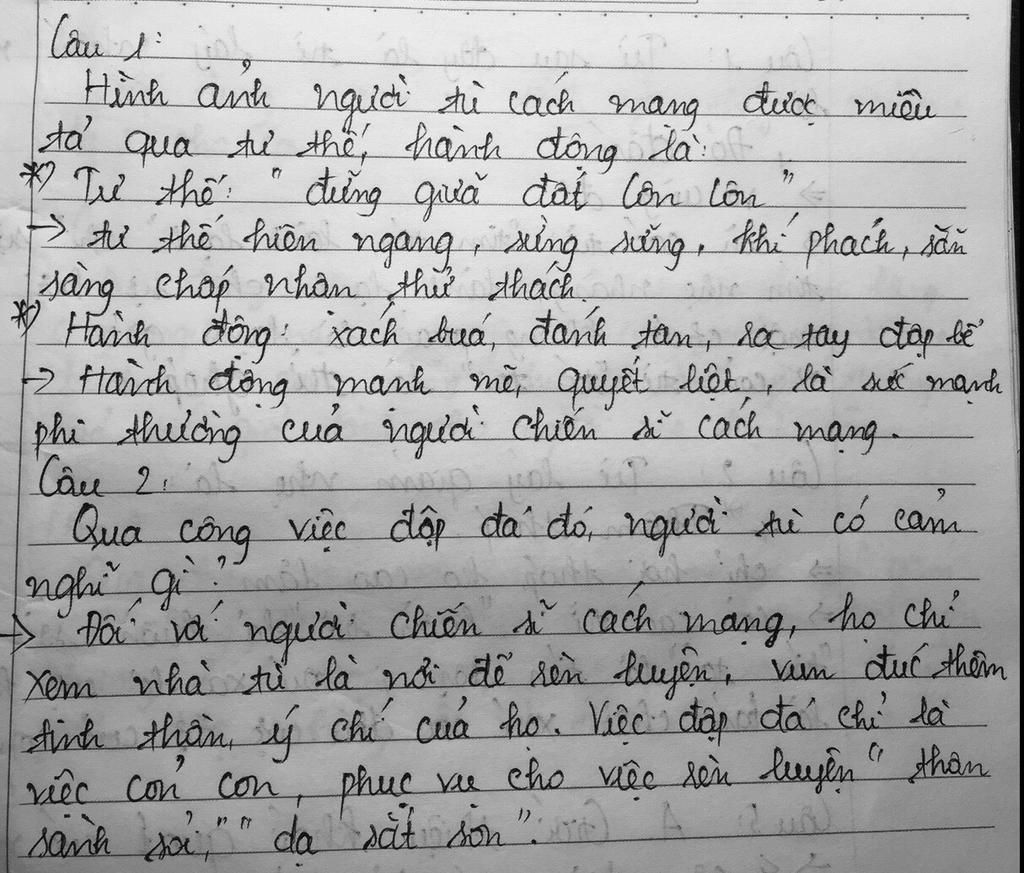 Câu 1:
Hình ảnh người tù cách mạng được miêu
tả qua tư thế, hành động là:
*) Tư thế: "đứng giữa đất Côn Lôn"
→ tư thế hiên ngang, sừng sững, khí phách, sẵn
sàng chấp nhận thử thách.
*) Hành động: xách búa, đánh tan, ra tay đập bể
→ Hành động mạnh mẽ, quyết liệt, là sức mạnh
phi thường của người chiến sĩ cách mạng.
Câu 2:
Qua công việc đập đá đó, người tù có cảm
nghĩ gì?
→ Đối với người chiến sĩ cách mạng, họ chỉ
xem nhà tù là nơi để rèn luyện, vun đúc thêm
tinh thần, ý chí của họ. Việc đập đá chỉ là
việc cỏn con, phục vụ cho việc rèn luyện "thân
sành sỏi", "dạ sắt son".